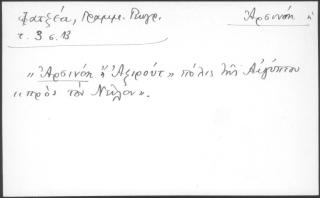 Φατζέα, Γραμμ. Γεωγρ.
τ. 3 σ. 13
Ἀρσινόη ἡ
"Ἀρσινόη ἢ Ἀζιρούτ" πόλις τῆς Αἰγύπτου
"πρὸς τὸν Νεῖλον".